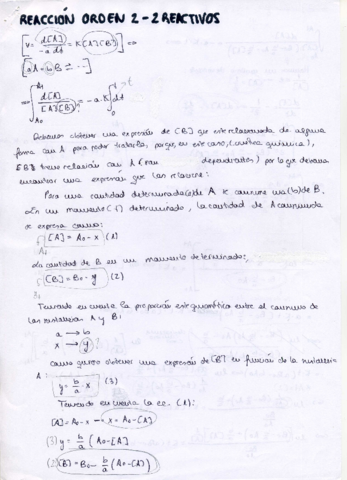 REACCIÓN ORDEN 2 - 2 REACTIVOS
[v = d[A] / -a dt = K[A][B]] ⇒
[aA + bB ⇌ ...]
∫ d[A] / [A][B] = -a·K ∫ dt
Debemos obtener una expresión de [B] que este relacionada de alguna
forma con A para poder tratarla, porque, en este caso, (cinética química),
[B] tiene relación con A (son dependientes) por lo que debemos
encontrar una expresión que las relacione:
Para una cantidad determinada (a) de A se consume una (b) de B.
En un momento (t) determinado, la cantidad de A consumida
se expresa como:
[A] = A₀ - x (1)
La cantidad de B en un momento determinado:
[B] = B₀ - y (2)
Teniendo en cuenta la proporción estequiométrica entre el consumo de
las sustancias A y B:
a → b
x → y
Como quiero obtener una expresión de [B] en función de la sustancia
A:
y = b/a · x (3)
Teniendo en cuenta la ec. (1):
[A] = A₀ - x → x = A₀ - [A]
(3) y = b/a (A₀ - [A])
(2) [B] = B₀ - b/a (A₀ - [A])